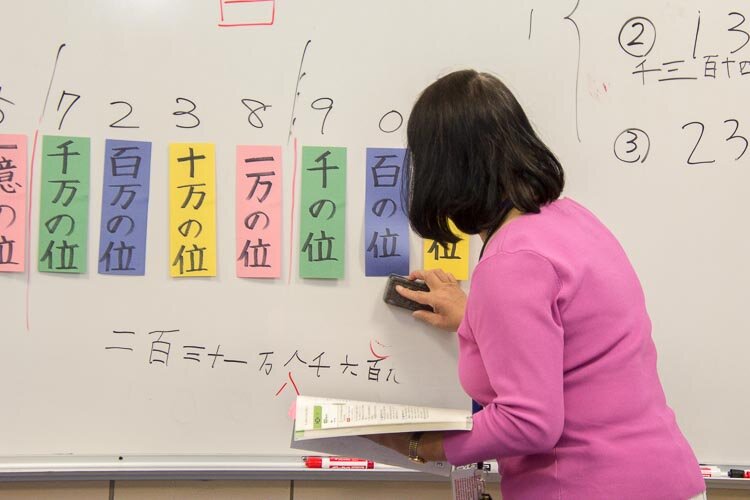 7 2 3 8 9 0
一億の位
千万の位
百万の位
十万の位
一万の位
千の位
百の位
位
二百三十一万八千六百
八
② 13
千三百十四
③ 23